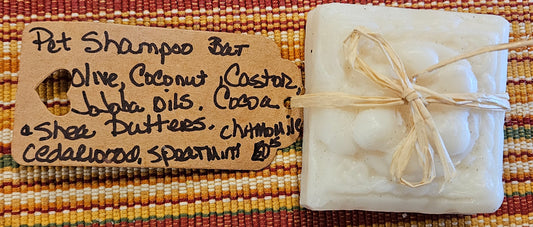 Pet Shampoo Bar
Olive, Coconut, Castor,
Jojoba oils. Cocoa
& Shea butters. Chamomile
Cedarwood, Spearmint EO's